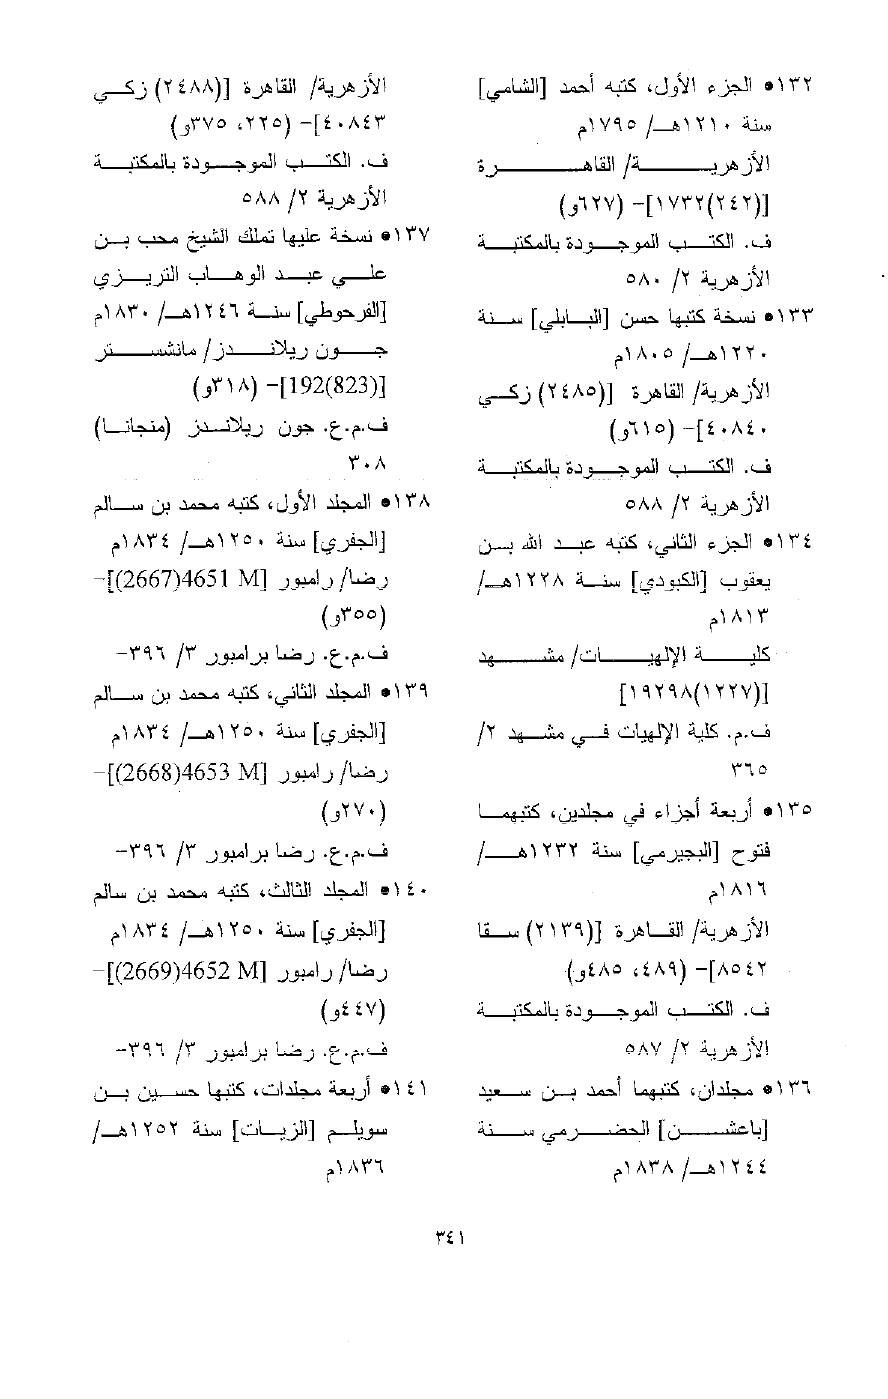 ١٣٢* الجزء الأول، كتبه أحمد [الشامي]
سنة ١٢١٠هـ/ ١٧٩٥م
الأزهرية/ القاهرة
[(٢٤٢)١٧٣٢]- (٦٢٧و)
ف. الكتب الموجودة بالمكتبة
الأزهرية ٢/ ٥٨٠
١٣٣* نسخة كتبها حسن [البابلي] سنة
١٢٢٠هـ/ ١٨٠٥م
الأزهرية/ القاهرة [(٢٤٨٥) زكي
٤٠٨٤٠]- (٦١٥و)
ف. الكتب الموجودة بالمكتبة
الأزهرية ٢/ ٥٨٨
١٣٤* الجزء الثاني، كتبه عبد الله بن
يعقوب [الكبودي] سنة ١٢٢٨هـ/
١٨١٣م
كلية الإلهيات/ مشهد
[(١٢٢٧)١٩٢٩٨]
ف.م. كلية الإلهيات في مشهد ٢/
٣٦٥
١٣٥* أربعة أجزاء في مجلدين، كتبهما
فتوح [البجيرمي] سنة ١٢٣٢هـ/
١٨١٦م
الأزهرية/ القاهرة [(٢١٣٩) سقا
٨٥٤٢]- (٤٨٩، ٤٨٥و)
ف. الكتب الموجودة بالمكتبة
الأزهرية ٢/ ٥٨٧
١٣٦* مجلدان، كتبهما أحمد بن سعيد
[باعشن] الحضرمي سنة
١٢٤٤هـ/ ١٨٣٨م
الأزهرية/ القاهرة [(٢٤٨٨) زكي
٤٠٨٤٣]- (٢٢٥، ٣٧٥و)
ف. الكتب الموجودة بالمكتبة
الأزهرية ٢/ ٥٨٨
١٣٧* نسخة عليها تملك الشيخ محب بن
علي عبد الوهاب التريزي
[الفرحوطي] سنة ١٢٤٦هـ/ ١٨٣٠م
جون ريلاندز/ مانشستر
[192(823)]- (٣١٨و)
ف.م.ع. جون ريلاندز (منجانا)
٣٠٨
١٣٨* المجلد الأول، كتبه محمد بن سالم
[الجفري] سنة ١٢٥٠هـ/ ١٨٣٤م
رضا/ رامبور [4651 M(2667)]-
(٣٥٥و)
ف.م.ع. رضا برامبور ٣/ ٣٩٦-
١٣٩* المجلد الثاني، كتبه محمد بن سالم
[الجفري] سنة ١٢٥٠هـ/ ١٨٣٤م
رضا/ رامبور [4653 M(2668)]-
(٢٧٠و)
ف.م.ع. رضا برامبور ٣/ ٣٩٦-
١٤٠* المجلد الثالث، كتبه محمد بن سالم
[الجفري] سنة ١٢٥٠هـ/ ١٨٣٤م
رضا/ رامبور [4652 M(2669)]-
(٤٤٧و)
ف.م.ع. رضا برامبور ٣/ ٣٩٦-
١٤١* أربعة مجلدات، كتبها حسين بن
سويلم [الزيات] سنة ١٢٥٢هـ/
١٨٣٦م
٣٤١